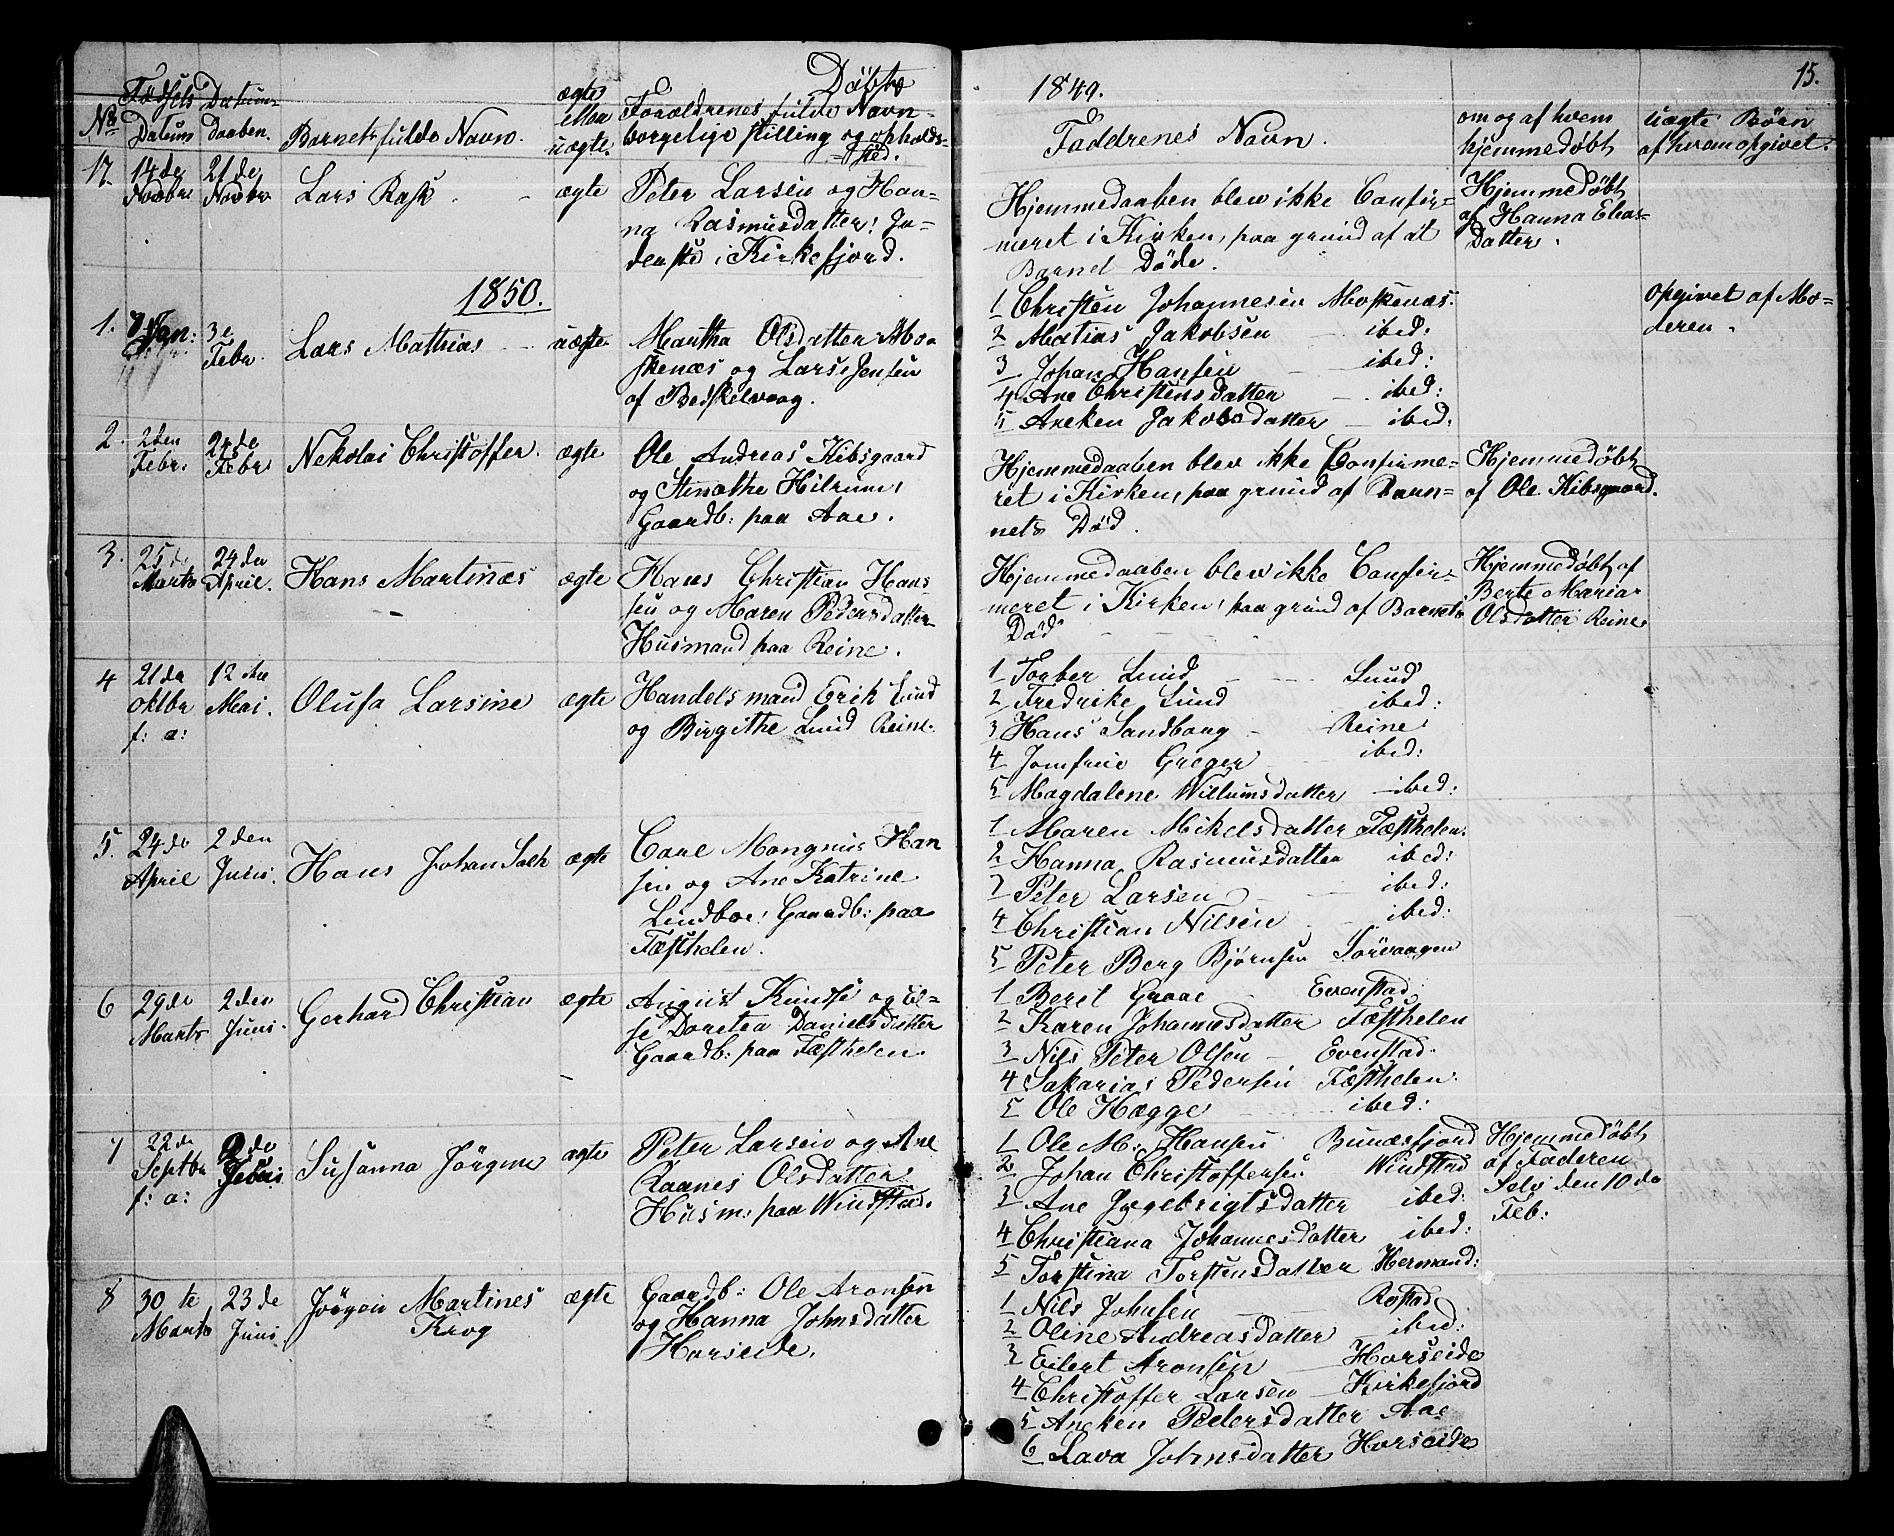 Døbte
1849.
15.
No Fødsels Datum
Datum Daaben.
Barnets fulde Navn.
ægte eller uægte.
Forældrenes fulde Navn
borgelige stilling og opholds-
sted.
Faddrenes Navn.
om og af hvem
hjemmedøbt
uægte Børn
af hvem opgivet.
17. 14de Novbr 21de Novbr Lars Rask ægte
Peter Larsen og Han-
na Rasmusdatter
i Kirkefjord.
Hjemmedaaben blev ikke Confir-
meret i Kirken, paa grund af at
Barnet Døde.
Hjemmedøbt
af Hanna Elias-
Datter.
1850.
1. Jan: 3e Febr. Lars Mathias uægte
Martha Olsdatter Mo-
skenæs og Lars Jensen
af
1 Christen Johannesen Moskenæs.
2 Matias Jakobsen ibed:
3 Johan Hansen ibed:
4 Ane Christensdatter ibed:
5 Aneken Jakobsdatter ibed:
opgivet af Mo-
deren.
2. 2den Febr. 24de Febr Nekolai Christoffer. ægte
Ole Andreas Kibsgaard
og Hilrum,
Gaardb: paa Aae.
Hjemmedaaben blev ikke Confirme-
ret i Kirken, paa grund af Barn-
nets Død.
Hjemmedøbt
af Ole Kibsgaard.
3. 25de Marts 24de April. Hans Martinæs ægte
Hans Christian Han-
sen og Maren Pedersdatter
Husmand paa Reine.
Hjemmedaaben blev ikke Confir-
meret i Kirken, paa grund af Barnets
Død
Hjemmedøbt af
Berte Maria
Olsdatter Reine
4 21de oktbr f: a: 12te Mai. Olufa Larsine ægte
Handelsmand Erik Lund
og Birgithe Lund Reine.
1 Torber Lund Sund
2 Fredrike Lund ibed:
3 Hans Sandborg Reine
4 Jomfrue Greger ibed:
5 Magdalene Willumsdatter ibed:
5. 24de April 2den Juni. Hans Johan ægte
Carl Mongnus Han
sen og Ane Katrine
Lindboe, Gaardb: paa
Fæsthelen.
1 Maren Mikelsdatter Fæsthelen.
2 Hanna Rasmusdatter ibed:
3 Peter Larsen ibed:
4 Christian Nilsen ibed:
5 Peter Berg Bjørnsen Sørvaagen
6 29de Marts 2den Juni. Gerhard Christian ægte
August og El-
se Doretea Danielsdatter
Gaardb: paa Fæsthelen.
1 Beret Graae Evenstad
2 Karen Johannesdatter Fæsthelen
3 Nils Peter Olsen Evenstad.
4 Sakarias Pedersen Fæsthelen:
5 Ole Hægge ibed:
7 22de Septbr f: a: 2de Susanna Jørgine ægte
Peter Larsen og Ane
Raanes Olsdatter
Husm: paa Windstad.
1 Ole M: Hansen Bunæsfjord
2 Johan Christoffersen Windstad
3 Ane Ingebrigtsdatter ibed:
4 Christiana Johannesdatter ibed:
5 Torstina Torstensdatter Hermand:
Hjemmedøbt
af Faderen
Selv den 10de
Feb:
8 30te Marts 23de Juni. Jørgen Martines Krog ægte
Gaardb: Ole Aronsen
og Hanna Johnsdatter
Horseide.
1 Nils Johnsen Rostad
2 Oline Andreasdatter ibed:
3 Eilert Aronsen Horseide
4 Christoffer Larsen Kirkefjord
5 Aneken Pedersdatter Aae
6 Lava Johnsdatter Horseide